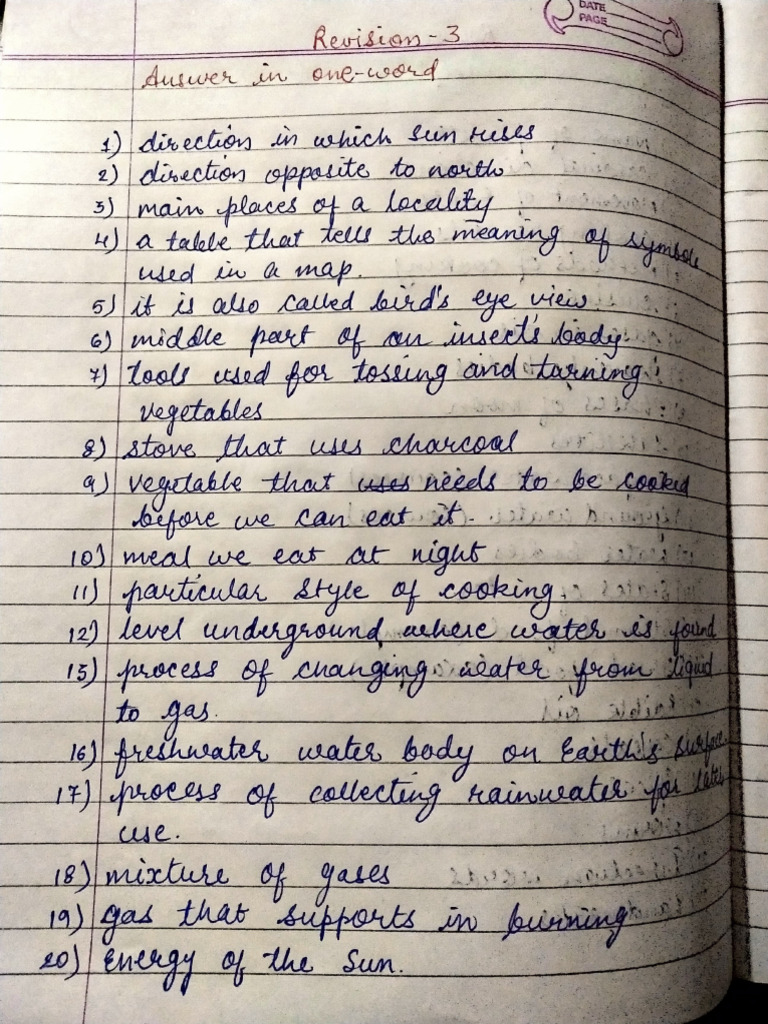 DATE
PAGE
Revision - 3
Answer in one-word
1) direction in which sun rises
2) direction opposite to north
3) main places of a locality
4) a table that tells the meaning of symbols
used in a map.
5) it is also called bird's eye view
6) middle part of an insect's body.
7) tools used for tossing and turning
vegetables
8) stove that uses charcoal
9) vegetable that uses needs to be cooked
before we can eat it.
10) meal we eat at night
11) particular style of cooking.
12) level underground where water is found
15) process of changing water from liquid
to gas.
16) freshwater water body on Earth's surface
17) process of collecting rainwater for later
use.
18) mixture of gases
19) gas that supports in burning
20) Energy of the Sun.